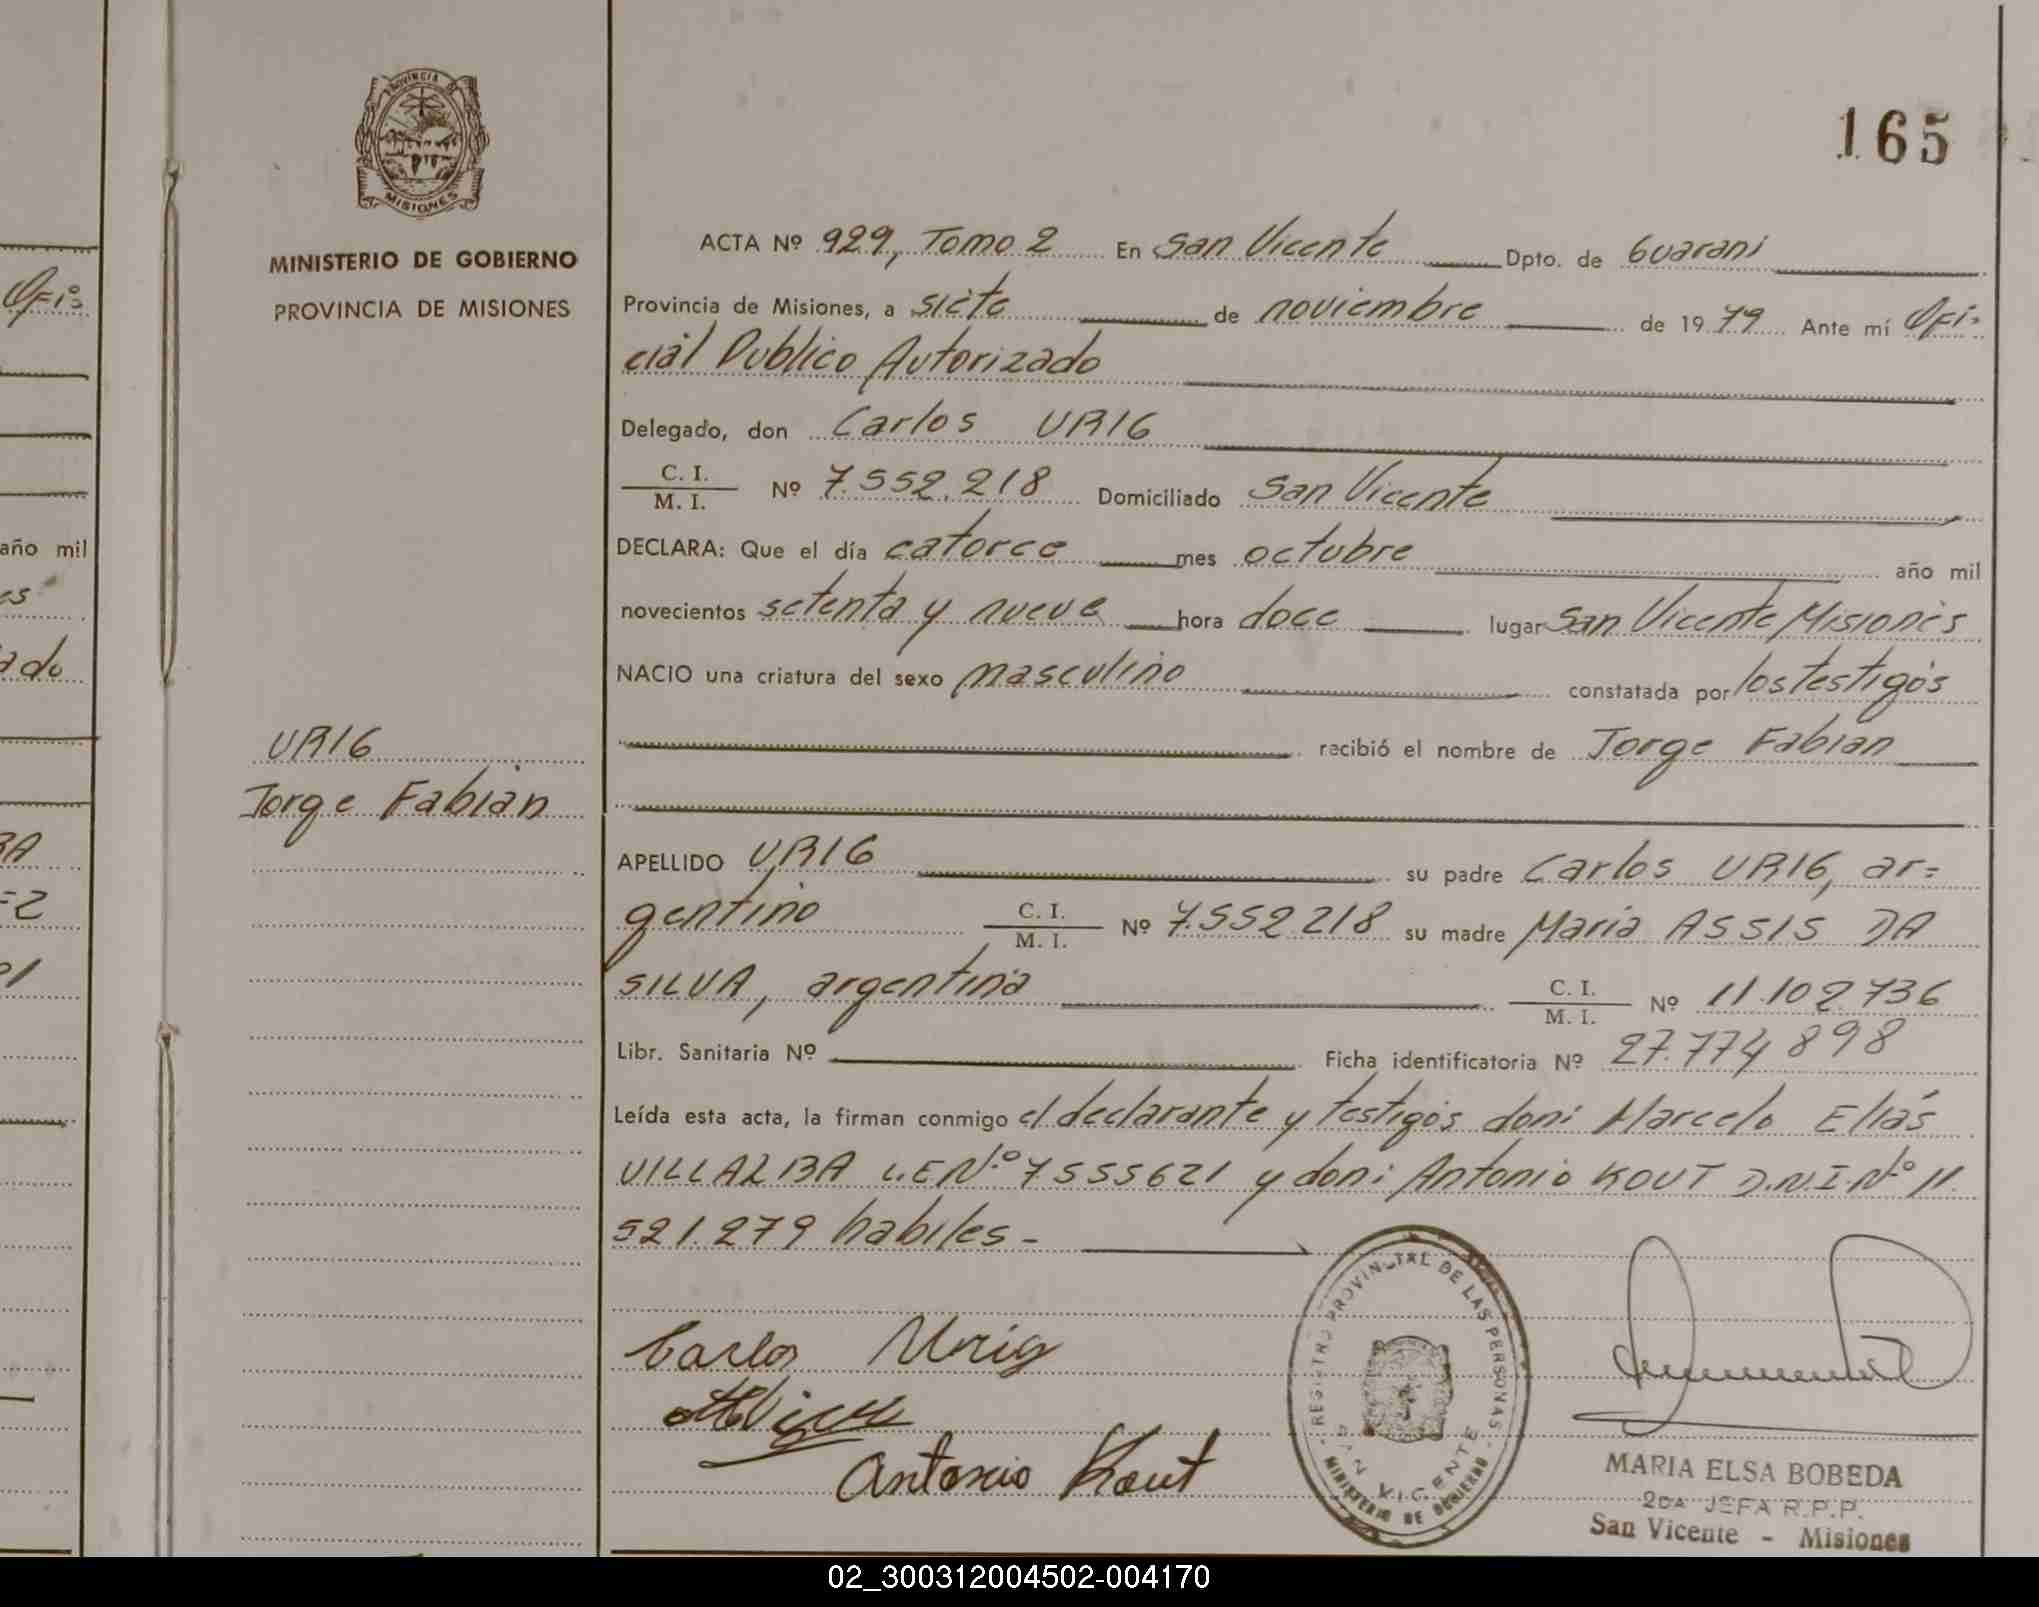 PROVINCIA DE
MISIONES
MINISTERIO DE GOBIERNO
PROVINCIA DE MISIONES
165
ACTA Nº 929, Tomo 2 En San Vicente Dpto. de Guarani
Provincia de Misiones, a siete de noviembre de 1979 Ante mí Ofi-
cial Publico Autorizado
Delegado, don Carlos URIG
C. I.
M. I. Nº 7.552.218 Domiciliado San Vicente
DECLARA: Que el día catorce mes octubre año mil
novecientos setenta y nueve hora doce lugar San Vicente Misiones
NACIO una criatura del sexo masculino constatada por los testigos
recibió el nombre de Jorge Fabian
URIG
Jorge Fabián
APELLIDO URIG su padre Carlos URIG, ar-
gentino C. I.
M. I. Nº 7.552.218 su madre Maria ASSIS DA
SILVA, argentina C. I.
M. I. Nº 11.102.736
Libr. Sanitaria Nº Ficha identificatoria Nº 27.774.898
Leída esta acta, la firman conmigo el declarante y testigos don: Marcelo Eliás
VILLALBA L.E Nº 7555621 y don: Antonio KOUT D.N.I Nº 11.
521.279 habiles.-
Carlos Urig
Antonio Kout
REGISTRO PROVINCIAL DE LAS PERSONAS
SAN VICENTE
MINISTERIO DE GOBIERNO
MARIA ELSA BOBEDA
2DA JEFA R.P.P.
San Vicente - Misiones
Ofi-
año mil
es
ado
BA
-2
01
02_300312004502-004170